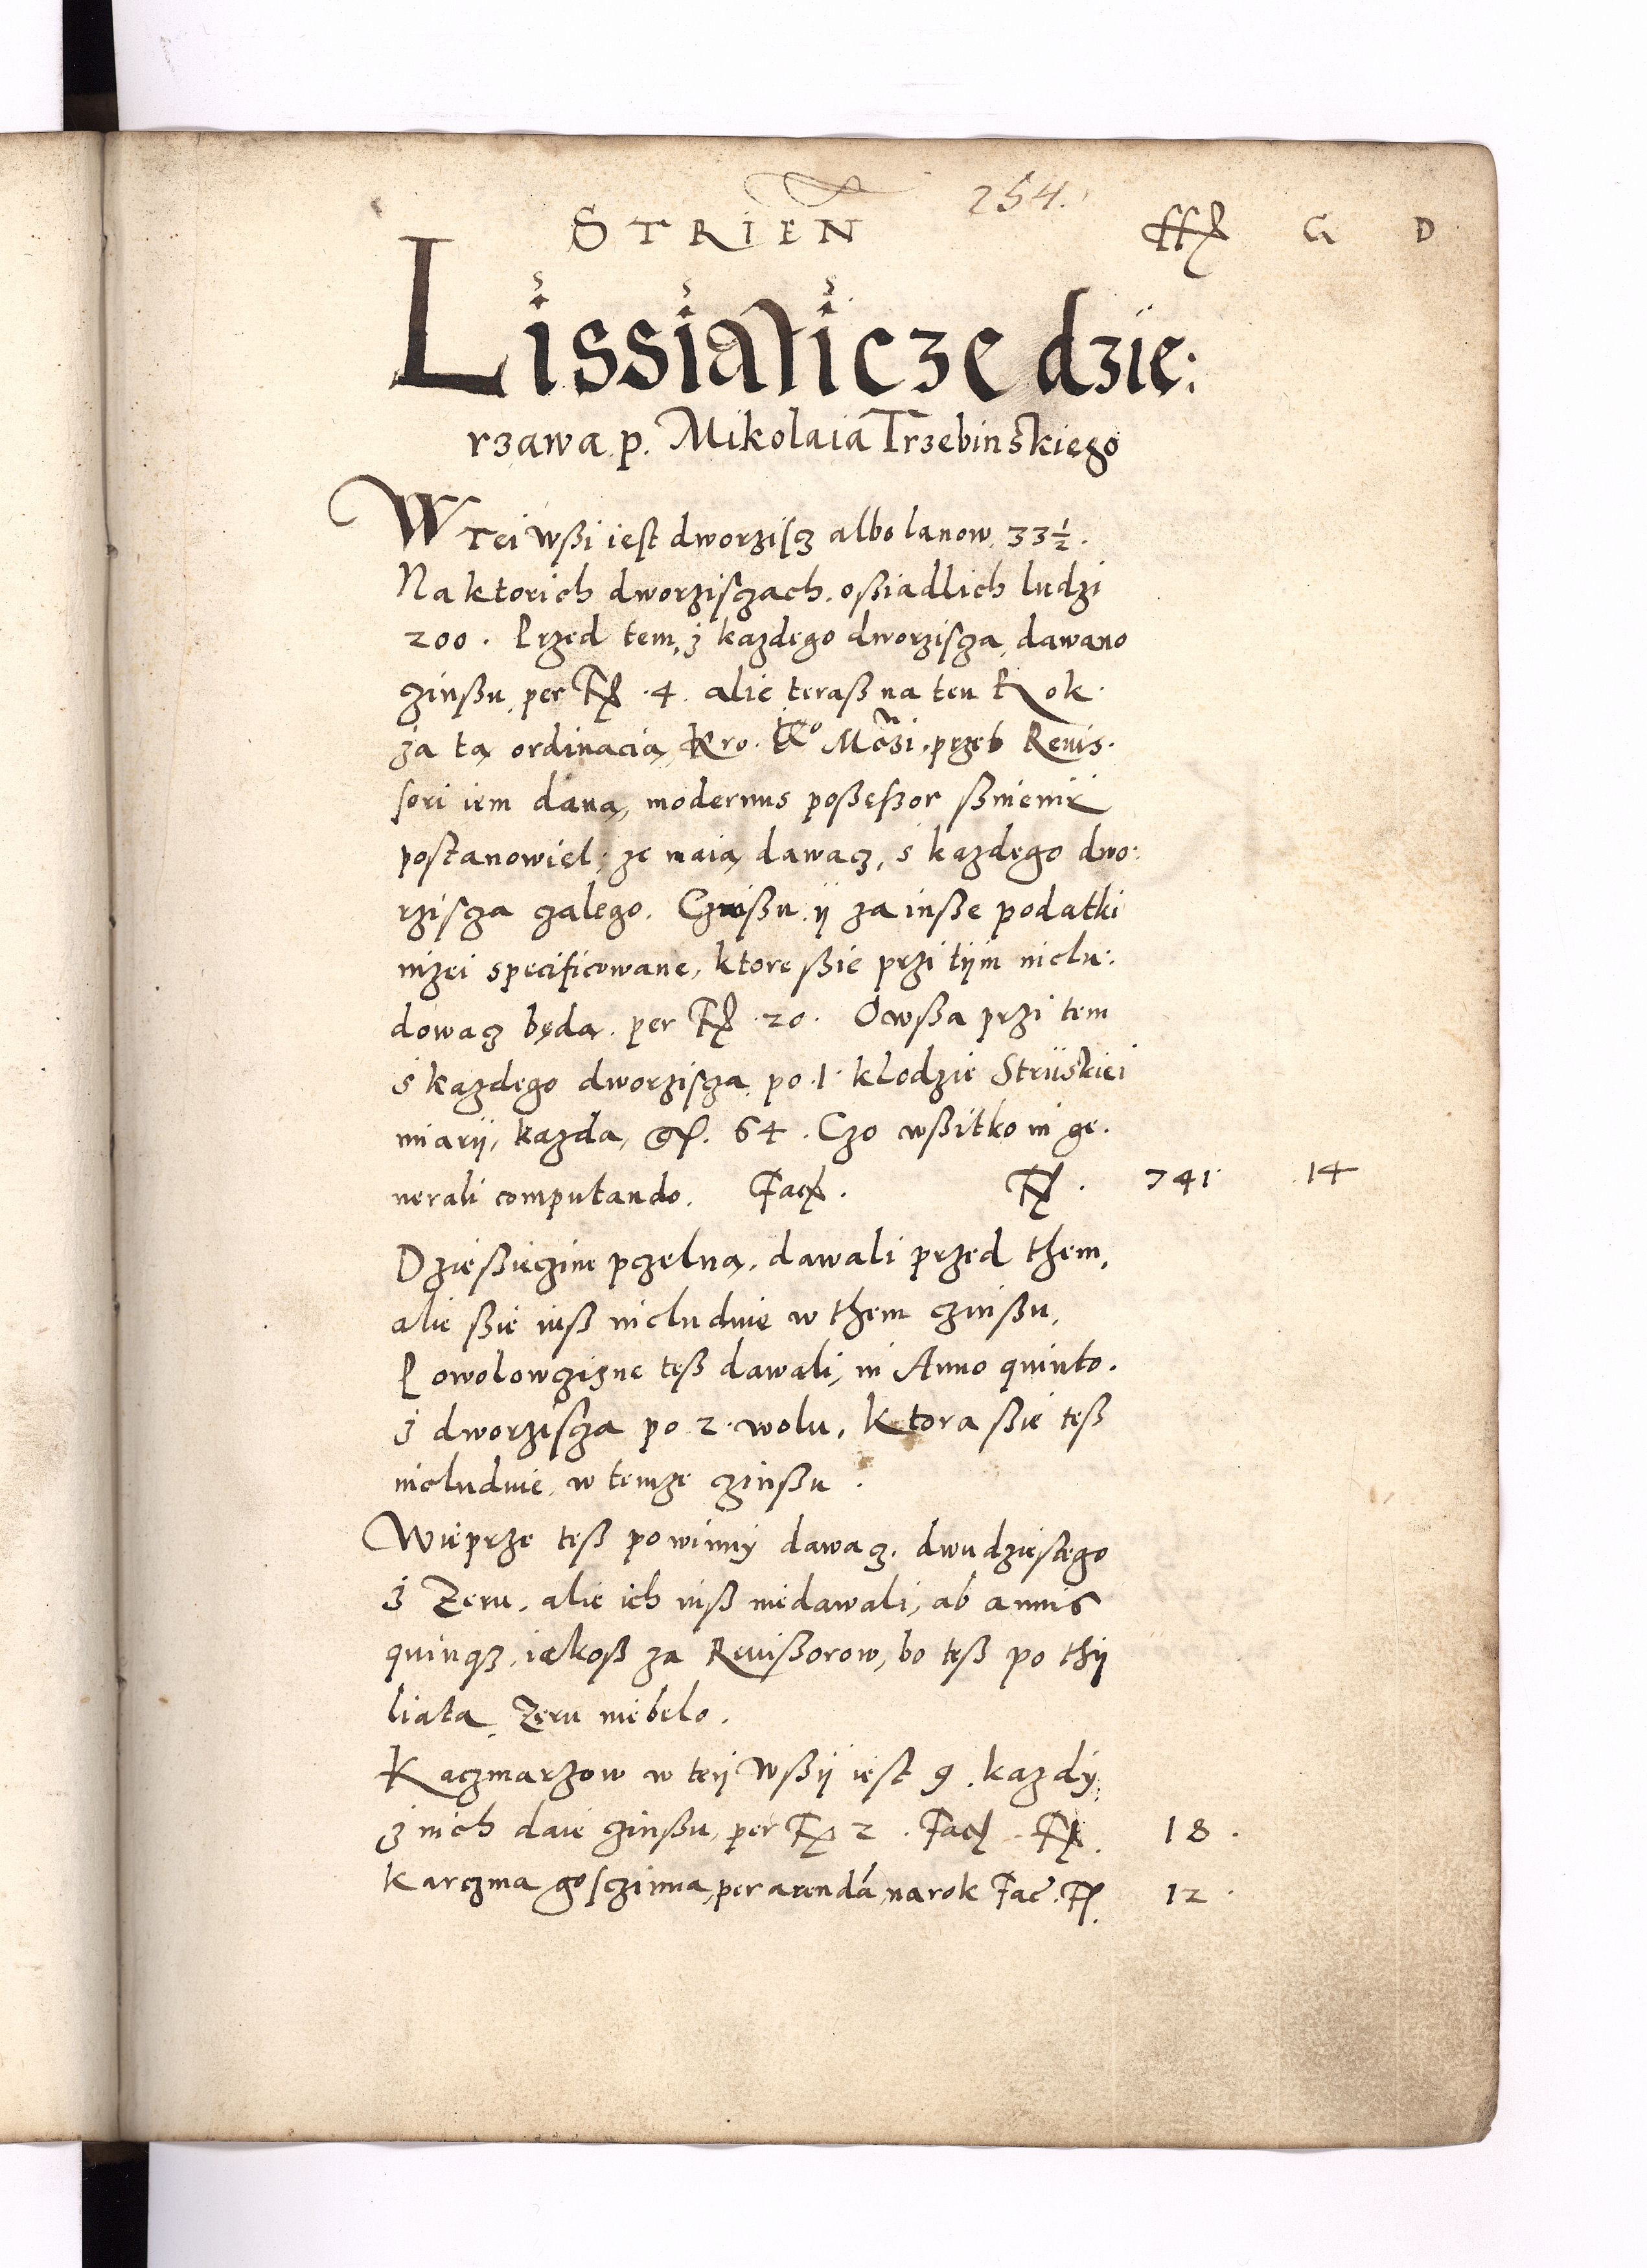 254.
STRIEN̄ ff G D
Lissiaticze dzie:
rzawa p. Mikolaia Trzebinskiego
W Tei wßi iest dworziscz albo lanow 33½.
Na ktorich dworzisczach. oßiadlich ludzi
200. Przed tem, z kazdego dworziscza, dawano
czinßu, per f 4. alie teraß na ten Rok
za tą ordinacią Kro. Mczi. przeß Reuis.
sori iem daną, modernus poßeßor ßnieniė
postanowiel: ze maią dawacz, s kazdego dwo:
rziscza czalego. Czinßu ij za inße podatki
nizei specificowane, ktore ßie przi tijm inclu:
dowacz będą. per f 20. Owßa przi tem
s kazdego dworziscza po 1 klodzie Striiskiei
miarij, kazda, gr. 64. Czo wßitko in ge.
nerali computando. Fac. f. 741 14
Dzießieczine pczelną, dawali przed them,
alie ßie iuß includuie w them czinßu,
Powolowczizne teß dawali, in Anno quinto.
z dworziscza po 2. wolu, Ktora ßie teß
includuie w temze czinßu.
Wieprze teß powinny dawacz. dwudziestego
z Zeru, alie ich iuß niedawali, ab annis
quinqz, iakoß za Reuißorow, bo teß po thij
liata Zeru niebelo.
Kaczmarzow w teij wßij iest 9. kazdy
z nich daie czinßu, per f 2. Fac f. 18.
karczma gosczinna, per arendā, na rok Fac. f. 12.